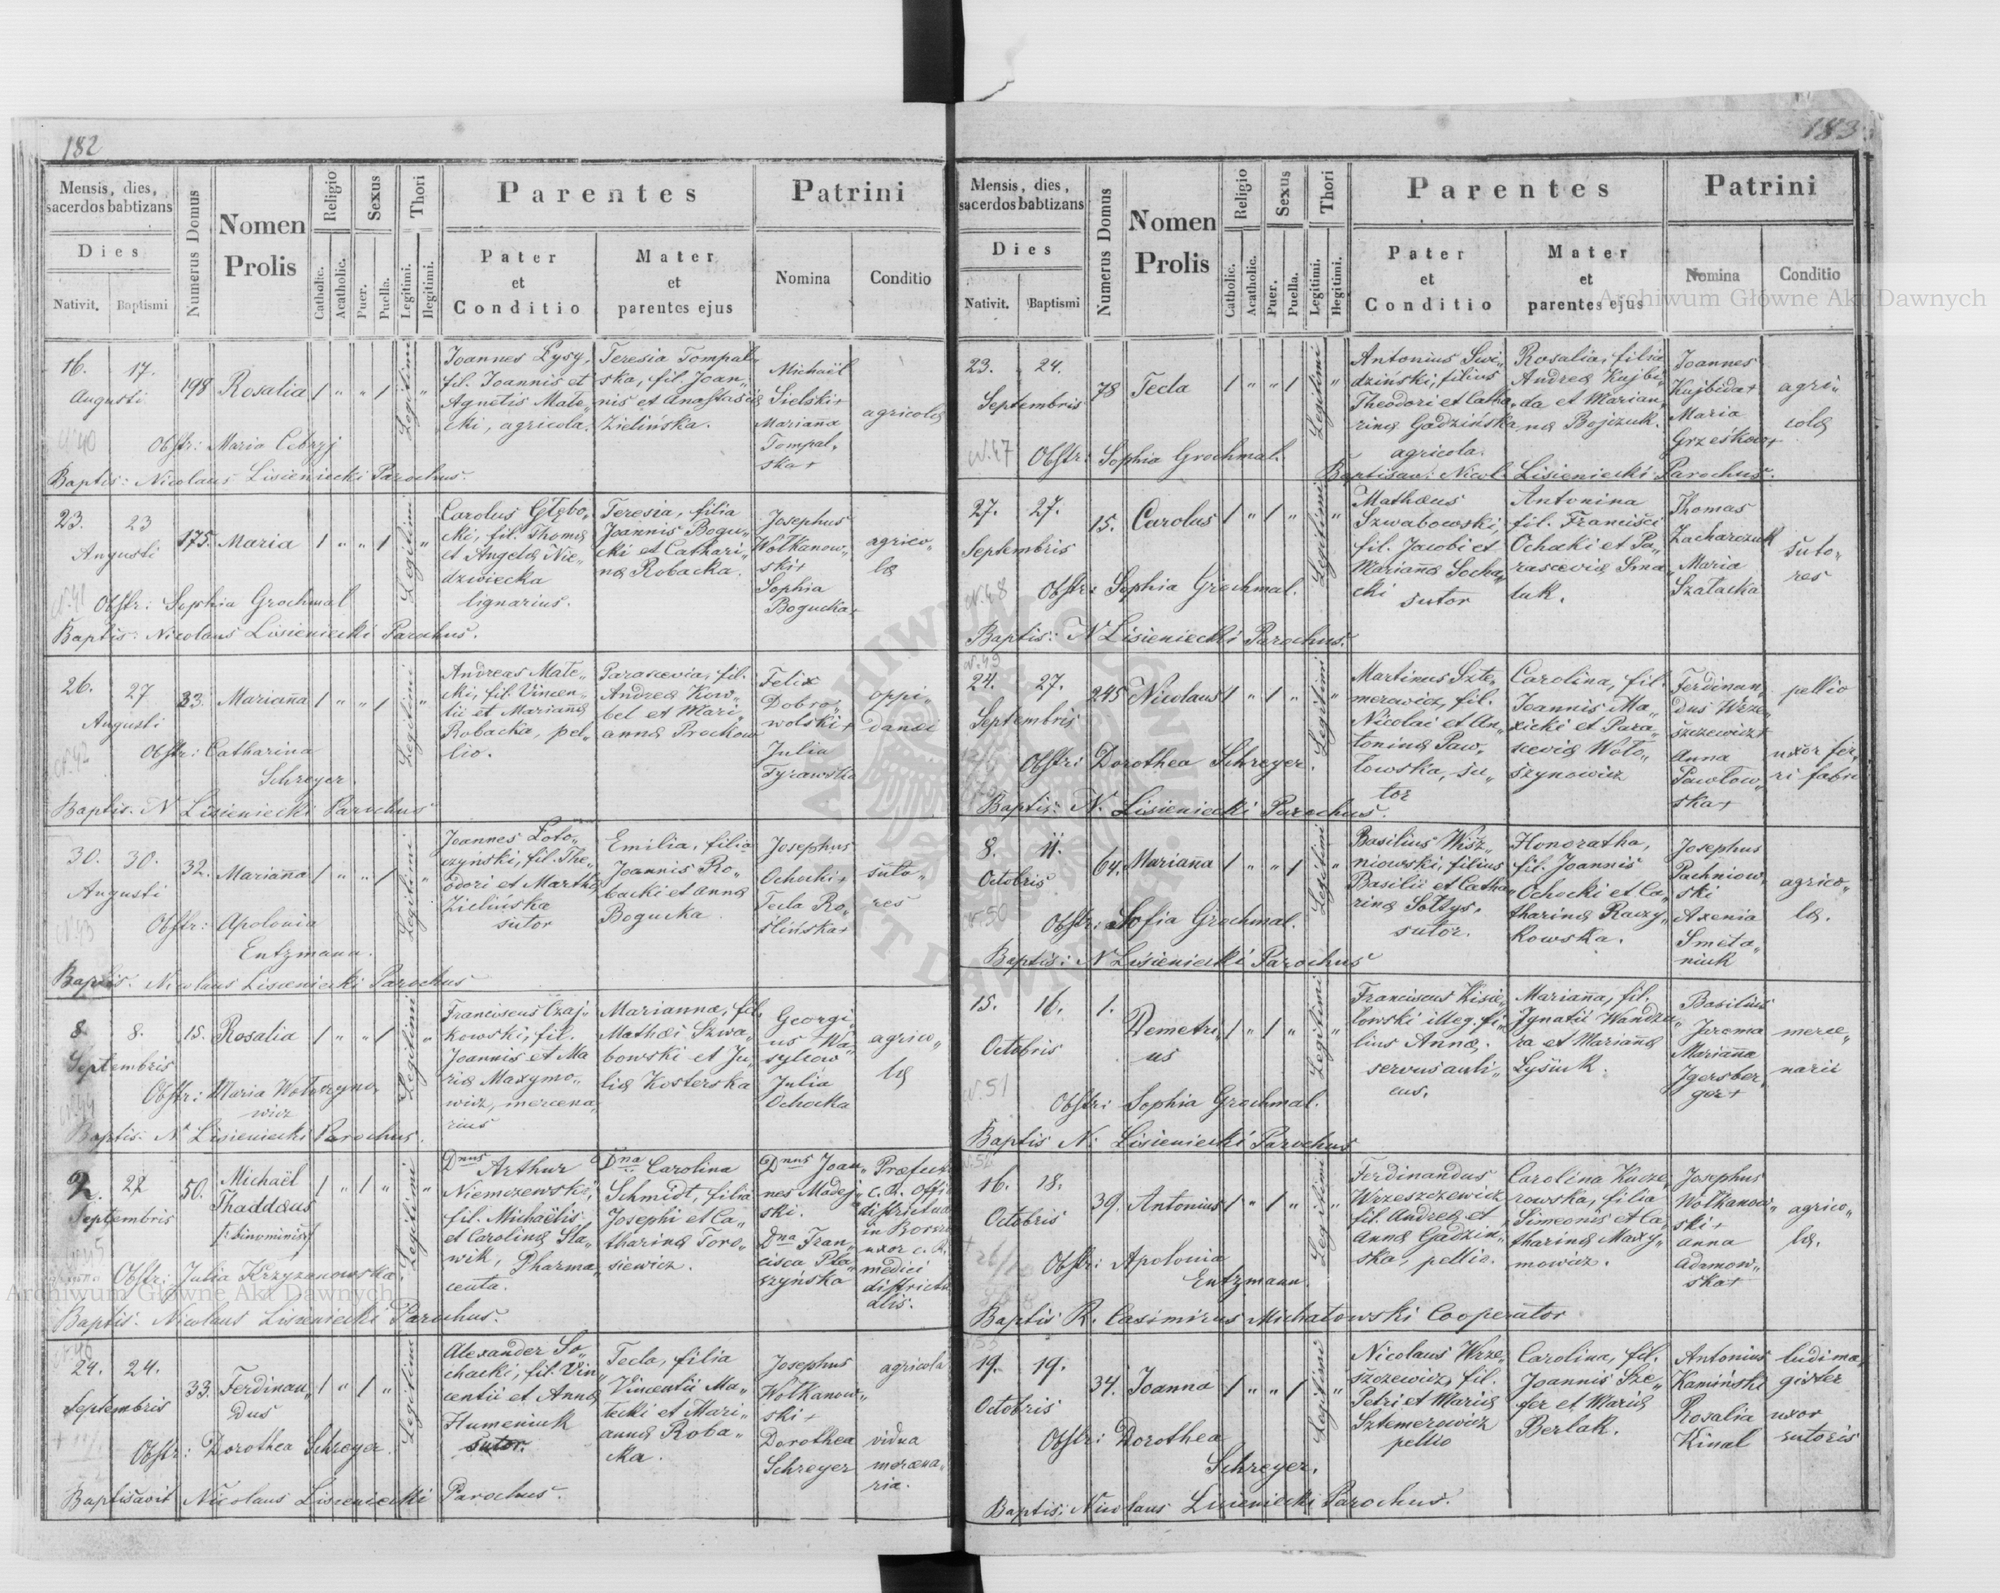 182
Mensis, dies,
sacerdos babtizans
Dies
Nativit. Baptismi
Numerus Domus
Nomen
Prolis
Religio
Catholic.
Acatholic.
Sexus
Puer.
Puella.
Thori
Legitimi.
Illegitimi.
Parentes
Pater
et
Conditio
Mater
et
parentes ejus
Patrini
Nomina
Conditio
16. 17.
Augusti
198
Rosalia
1 „ „ 1 Legitimi „
Joannes Łysy,
fil. Joannis et
Agnetis Mate„
cki, agricola.
Teresia Tompal„
ska, fil. Joan„
nis et Anastasiæ
Zielińska.
Michaël
Sielski+
Marianna
Tompal„
ska+
agricolæ
Obstr: Maria Cebryj
Baptis: Nicolaus Lisieniecki Parochus.
23. 23
Augusti
175.
Maria
1 „ „ 1 Legitimi „
Carolus Głębo„
cki, fil. Thomæ
et Angelæ Nie„
dzwiecka
lignarius.
Teresia, filia
Joannis Bogu„
cki et Cathari„
næ Robacka.
Josephus
Wołkanow„
ski+
Sophia
Bogucka+
agrico„
læ
Obstr: Sophia Grochmal
Baptis: Nicolaus Lisieniecki Parochus.
26. 27
Augusti
33.
Marianna
1 „ „ 1 Legitimi „
Andreas Mate„
cki, fil. Vincen„
tii et Mariannæ
Robacka, pel„
lio.
Parascevia, fil.
Andreæ Kow„
bel et Mari„
annæ Prockow
Felix
Dobro„
wolski+
Julia
Tyrawska
oppi„
danei
Obstr: Catharina
Schreyer.
Baptis. N Lisieniecki Parochus
30. 30.
Augusti
32.
Marianna
1 „ „ 1 Legitimi „
Joannes Łoto„
czynski, fil. The„
odori et Marthæ
Zielińska
sutor
Emilia, filia
Joannis Ro„
backi et Annæ
Bogucka.
Josephus
Ochocki+
Tecla Ro„
slińska+
suto„
res
Obstr: Apolonia
Entzmann.
Baptis. Nicolaus Lisieniecki Parochus
8. 8.
Septembris
15.
Rosalia
1 „ „ 1 Legitimi „
Franciscus Czaj„
kowski, fil.
Joannis et Ma
riæ Maxymo„
wicz, mercena„
rius
Marianna, fil.
Mathæi Szwa„
bowski et Ju„
liæ Kosterska
Georgi„
us Wa„
sylcow
Julia
Ochocka
agrico„
læ
Obstr: Maria Wołoszyno„
wicz
Baptis. N Lisieniecki Parochus.
22
Septembris
50.
Michaël
Thaddæus
/:binominis:/
1 „ 1 „ Legitimi „
Dnus Arthur
Niemczewski,
fil. Michaëlis
et Carolinæ Sta„
wik, Pharma„
ceuta.
Dna Carolina
Schmidt, filia
Josephi et Ca„
tharinæ Toro„
siewicz.
Dnus Joan„
nes Madej„
ski.
Dna Fran„
cisca Pła„
szyńska
Præfect.
c. R. Offi
districtual
uxor c. R.
medici
districtu
alis.
Obstr: Julia Krzyzanowska
Baptis. Nicolaus Lisieniecki Parochus.
24. 24.
Septembris
33.
Ferdinan„
dus
1 „ 1 „ Legitimi
Alexander So„
chacki, fil. Vin„
centii et Annæ
Humeniuk
sutor.
Tecla, filia
Vincentii Ma„
tecki et Mari„
annæ Roba„
cka.
Josephus
Wołkanow„
ski+
Dorothea
Schreyer
agricola
vidua
mercena„
ria.
Obstr: Dorothea Schreyer.
Baptisavit Nicolaus Lisieniecki Parochus.
183
Mensis, dies,
sacerdos babtizans
Dies
Nativit. Baptismi
Numerus Domus
Nomen
Prolis
Religio
Catholic.
Acatholic.
Sexus
Puer.
Puella.
Thori
Legitimi.
Illegitimi.
Parentes
Pater
et
Conditio
Mater
et
parentes ejus
Patrini
Nomina
Conditio
23. 24.
Septembris
78
Tecla
1 „ „ 1 Legitimi „
Antonius Swi„
dziński, filius
Theodori et Catha„
rinæ Gadzińska
agricola.
Rosalia, filia
Andreæ Kujbi„
da et Marian„
næ Bojczuk.
Joannes
Kujbida+
Maria
Grześkow+
agri„
colæ
N.47
Obstr: Sophia Grochmal.
Baptisav: Nicol. Lisieniecki Parochus.
27. 27.
Septembris
15.
Carolus
1 „ 1 „ Legitimi „
Mathæus
Szwabowski,
fil. Jacobi et
Mariannæ Socha„
cki sutor
Antonina
fil. Francisci
Ochocki et Pa„
rasceviæ Sma„
luk.
Thomas
Zacharczuk
Maria
Szałacka
suto„
res
N.48
Obstr: Sophia Grochmal.
Baptis: N Lisieniecki Parochus.
N.49
24. 27.
Septembris
245
Nicolaus
1 „ 1 „ Legitimi „
Martinus Szte„
merowicz, fil.
Nicolai et An„
toninæ Paw„
łowska, su„
tor
Carolina, fil.
Joannis Ma„
xicki et Para„
sceviæ Woło„
szynowicz
Ferdinan„
dus Wrze„
szczewicz+
Anna
Pawłow„
ska+
pellio
uxor fer„
ri fabri
Obstr: Dorothea Schreyer.
Baptis: N. Lisieniecki Parochus.
8. 11.
Octobris
64.
Marianna
1 „ „ 1 Legitimi „
Basilius Wisz„
niowski, filius
Basilii et Catha„
rinæ Sołtys,
sutor.
Honoratha,
fil. Joannis
Ochocki et Ca„
tharinæ Raczy„
kowska.
Josephus
Pachniow„
ski
Axenia
Smeta„
niuk
agrico„
læ.
N.50
Obstr: Sofia Grochmal.
Baptis: N Lisieniecki Parochus
15. 16.
Octobris
1.
Demetri„
us
1 „ 1 „ Legitimi „
Franciscus Kisie„
lowski illeg. fi„
lius Annæ,
servus auli„
cus.
Marianna, fil.
Ignatii Wandzu„
ra et Mariannæ
Łysiuk.
Basilius
Jerema
Marianna
Igersber„
ger+
merce„
narii
N.51
Obstr: Sophia Grochmal.
Baptis N: Lisieniecki Parochus
16. 18.
Octobris
39.
Antonius
1 „ 1 „ Legitimi „
Ferdinandus
Wrzeszczewicz
fil. Andreæ et
Annæ Gadzin„
ska, pellio.
Carolina Kacze„
rowska, filia
Simeonis et Ca„
tharinæ Maxy„
mowicz.
Josephus
Wołkanow„
ski+
Anna
Adamow„
ska+
agrico„
læ.
Obstr: Apolonia
Entzmann.
Baptis R. Casimirus Michałowski Cooperator
19. 19.
Octobris
34.
Joanna
1 „ „ 1 Legitimi „
Nicolaus Wrze„
szczewicz, fil.
Petri et Mariæ
Sztemerowicz
pellio
Carolina, fil.
Joannis Sze„
fer et Mariæ
Berlak.
Antonius
Kamiński
Rosalia
Kinal
ludima„
gister
uxor
sutoris
Obstr: Dorothea
Schreyer.
Baptis: Nicolaus Lisieniecki Parochus.
Archiwum Główne Akt Dawnych
Archiwum Główne Akt Dawnych
ARCHIWUM GŁÓWNE AKT DAWNYCH